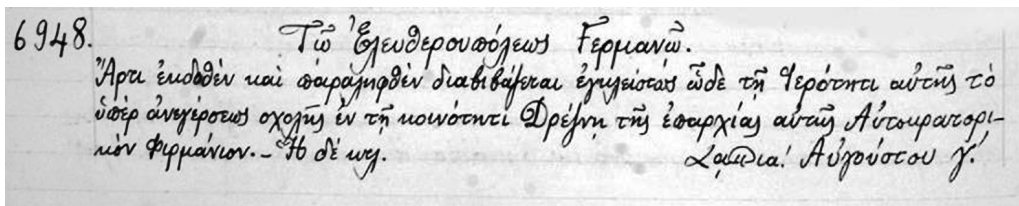 6948. Τῷ Ἐλευθερουπόλεως Γερμανῷ.
Ἄρτι ἐκδοθὲν καὶ παραληφθὲν διαβιβάζεται ἐγκλείστως ὧδε τῇ Ἱερότητι αὐτῆς τὸ
ὑπὲρ ἀνεγέρσεως σχολῆς ἐν τῇ κοινότητι Δρέζνῃ τῆς ἐπαρχίας αὐτῆς Αὐτοκρατορι-
κὸν Φιρμάνιον.- Ἡ δὲ κτλ. Αὐγούστου γ΄.